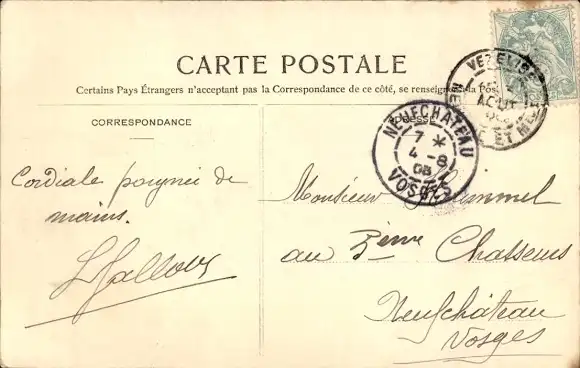 CARTE POSTALE
Certains Pays Étrangers n'acceptant pas la Correspondance de ce côté, se renseigner à la Pos
CORRESPONDANCE
VEZELISE
AOUT
ET M
NEUFCHATEAU
7 *
4 - 8
08
VOSGES
Cordiale poignée de
mains.
Monsieur
au 3ème Chasseurs
Neufchâteau
Vosges